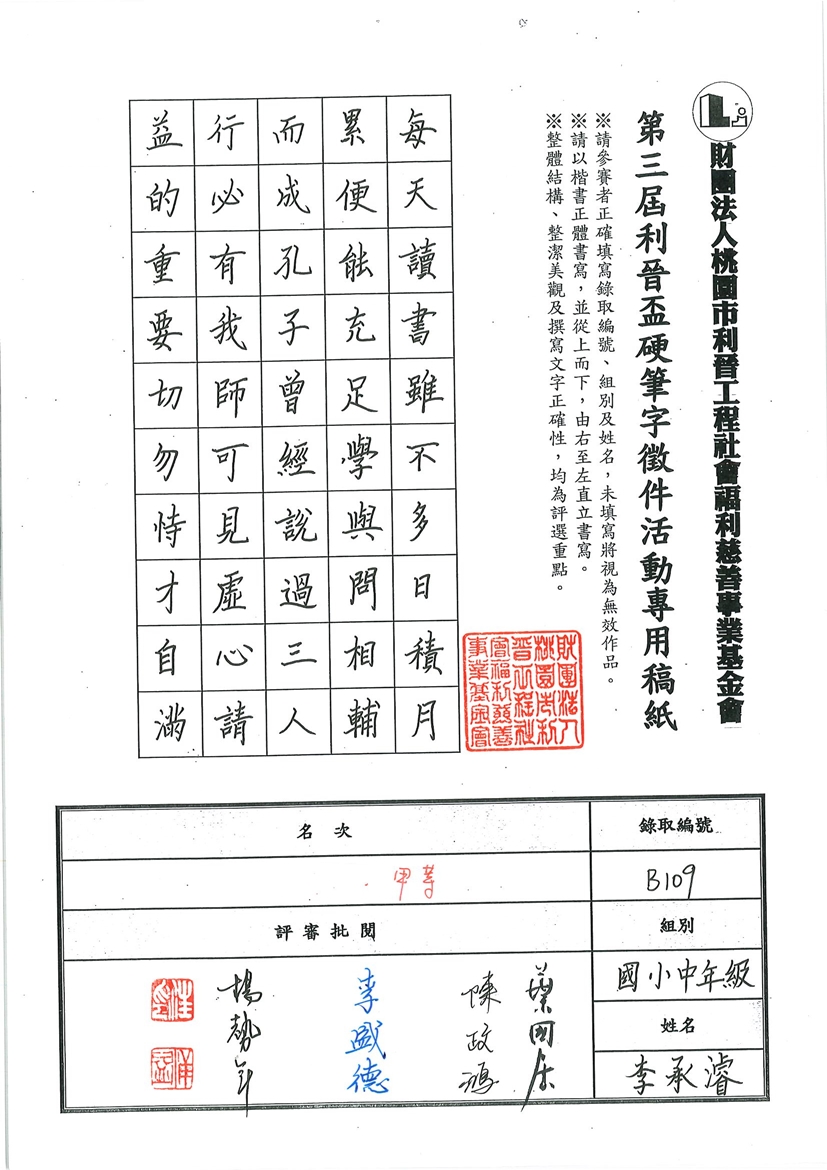 財團法人桃園市利晉工程社會福利慈善事業基金會
第三屆利晉盃硬筆字徵件活動專用稿紙
※請參賽者正確填寫錄取編號、組別及姓名，未填寫將視為無效作品。
※請以楷書正體書寫，並從上而下，由右至左直立書寫。
※整體結構、整潔美觀及撰寫文字正確性，均為評選重點。
每天讀書雖不多日積月
累便能充足學與問相輔
而成孔子曾經說過三人
行必有我師可見虛心請
益的重要切勿恃才自滿
財團法人
桃園市利
晉工程社
會福利慈善
事業基金會
錄取編號
B109
組別
國小中年級
姓名
李承濬
名次
甲等
評審批閱
葉國
陳政鴻
李盛德
楊勢年